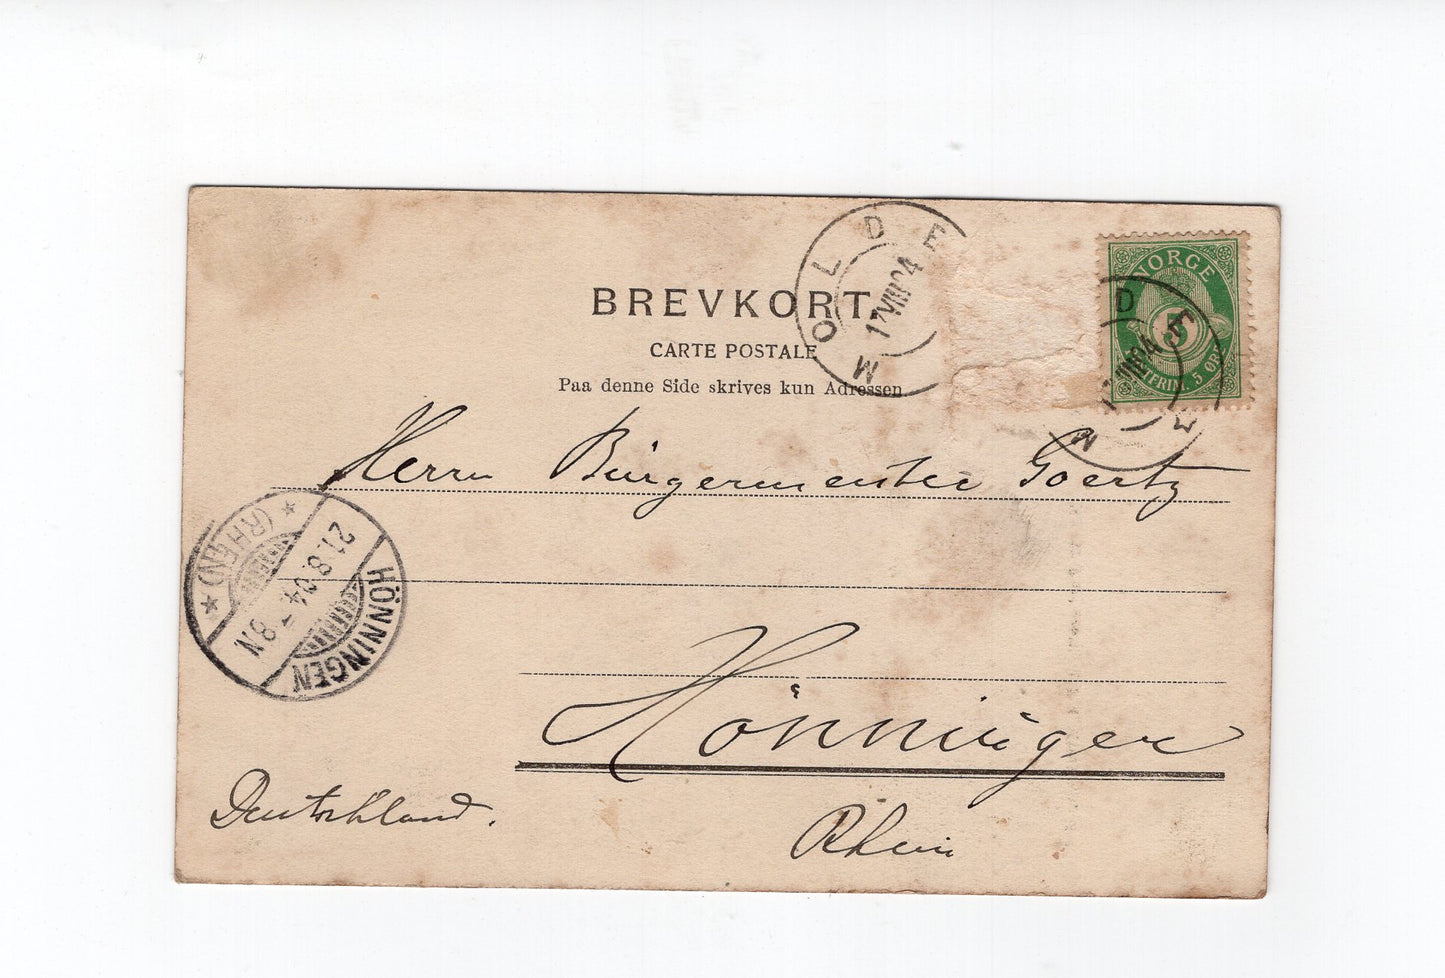 BREVKORT.
CARTE POSTALE
Paa denne Side skrives kun Adressen.
MOLDE
17 VIII 04
NORGE
5
FRIM. 5 ØRE
MOLDE
VIII 04
Herrn Bürgermeister Goertz
HÖNNINGEN
21.8.04. 7-8N.
* (RHEIN) *
Hönningen
Rhein
Deutschland.